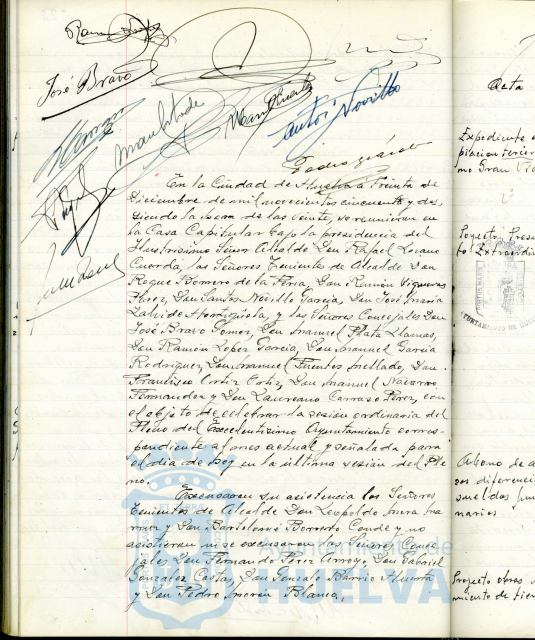 José Bravo
Antº Novillo
En la Ciudad de Huelva a Treinta de
Diciembre de mil novecientos cincuenta y dos,
siendo la hora de las veinte, se reunieron en
la Casa Capitular bajo la presidencia del
Ilustrísimo Señor Alcalde Don Rafael Lozano
Cuerda, los Señores Tenientes de Alcalde Don
Roque Borrero de la Peña, Don Ramón Vigueras
Pérez, Don Santos Novillo García, Don José María
Zalvide Hormigüela, y los Señores Concejales Don
José Bravo Gómez, Don Manuel Plata Llamas,
Don Ramón López García, Don Manuel García
Rodríguez, Don Manuel Fuentes Mellado, Don
Francisco Ortiz Ortiz, Don Manuel Navarro
Fernández y Don Laureano Carrasco Pérez, con
el objeto de celebrar la sesión ordinaria del
Pleno del Excelentísimo Ayuntamiento corres-
pondiente al mes actual y señalada para
el día de hoy en la última sesión del Ple
no.
Excusaron su asistencia los Señores
Tenientes de Alcalde Don Leopoldo
y Don Bartolomé Borrero Conde y no
asistieron ni se excusaron los Señores Conce
jales, Don Fernando Pérez Arroyo, Don Gabriel
González Costas, Don Gonzalo Barrio Huerta
y Don Pedro Morón Blanco.
Ayuntamiento de
HUELVA
Acta
Expediente
mo Gran Vía
Proyecto Presu
to Extraordin
Abono de a
sos diferenci
sueldos fun
narios
Proyecto obras
miento de